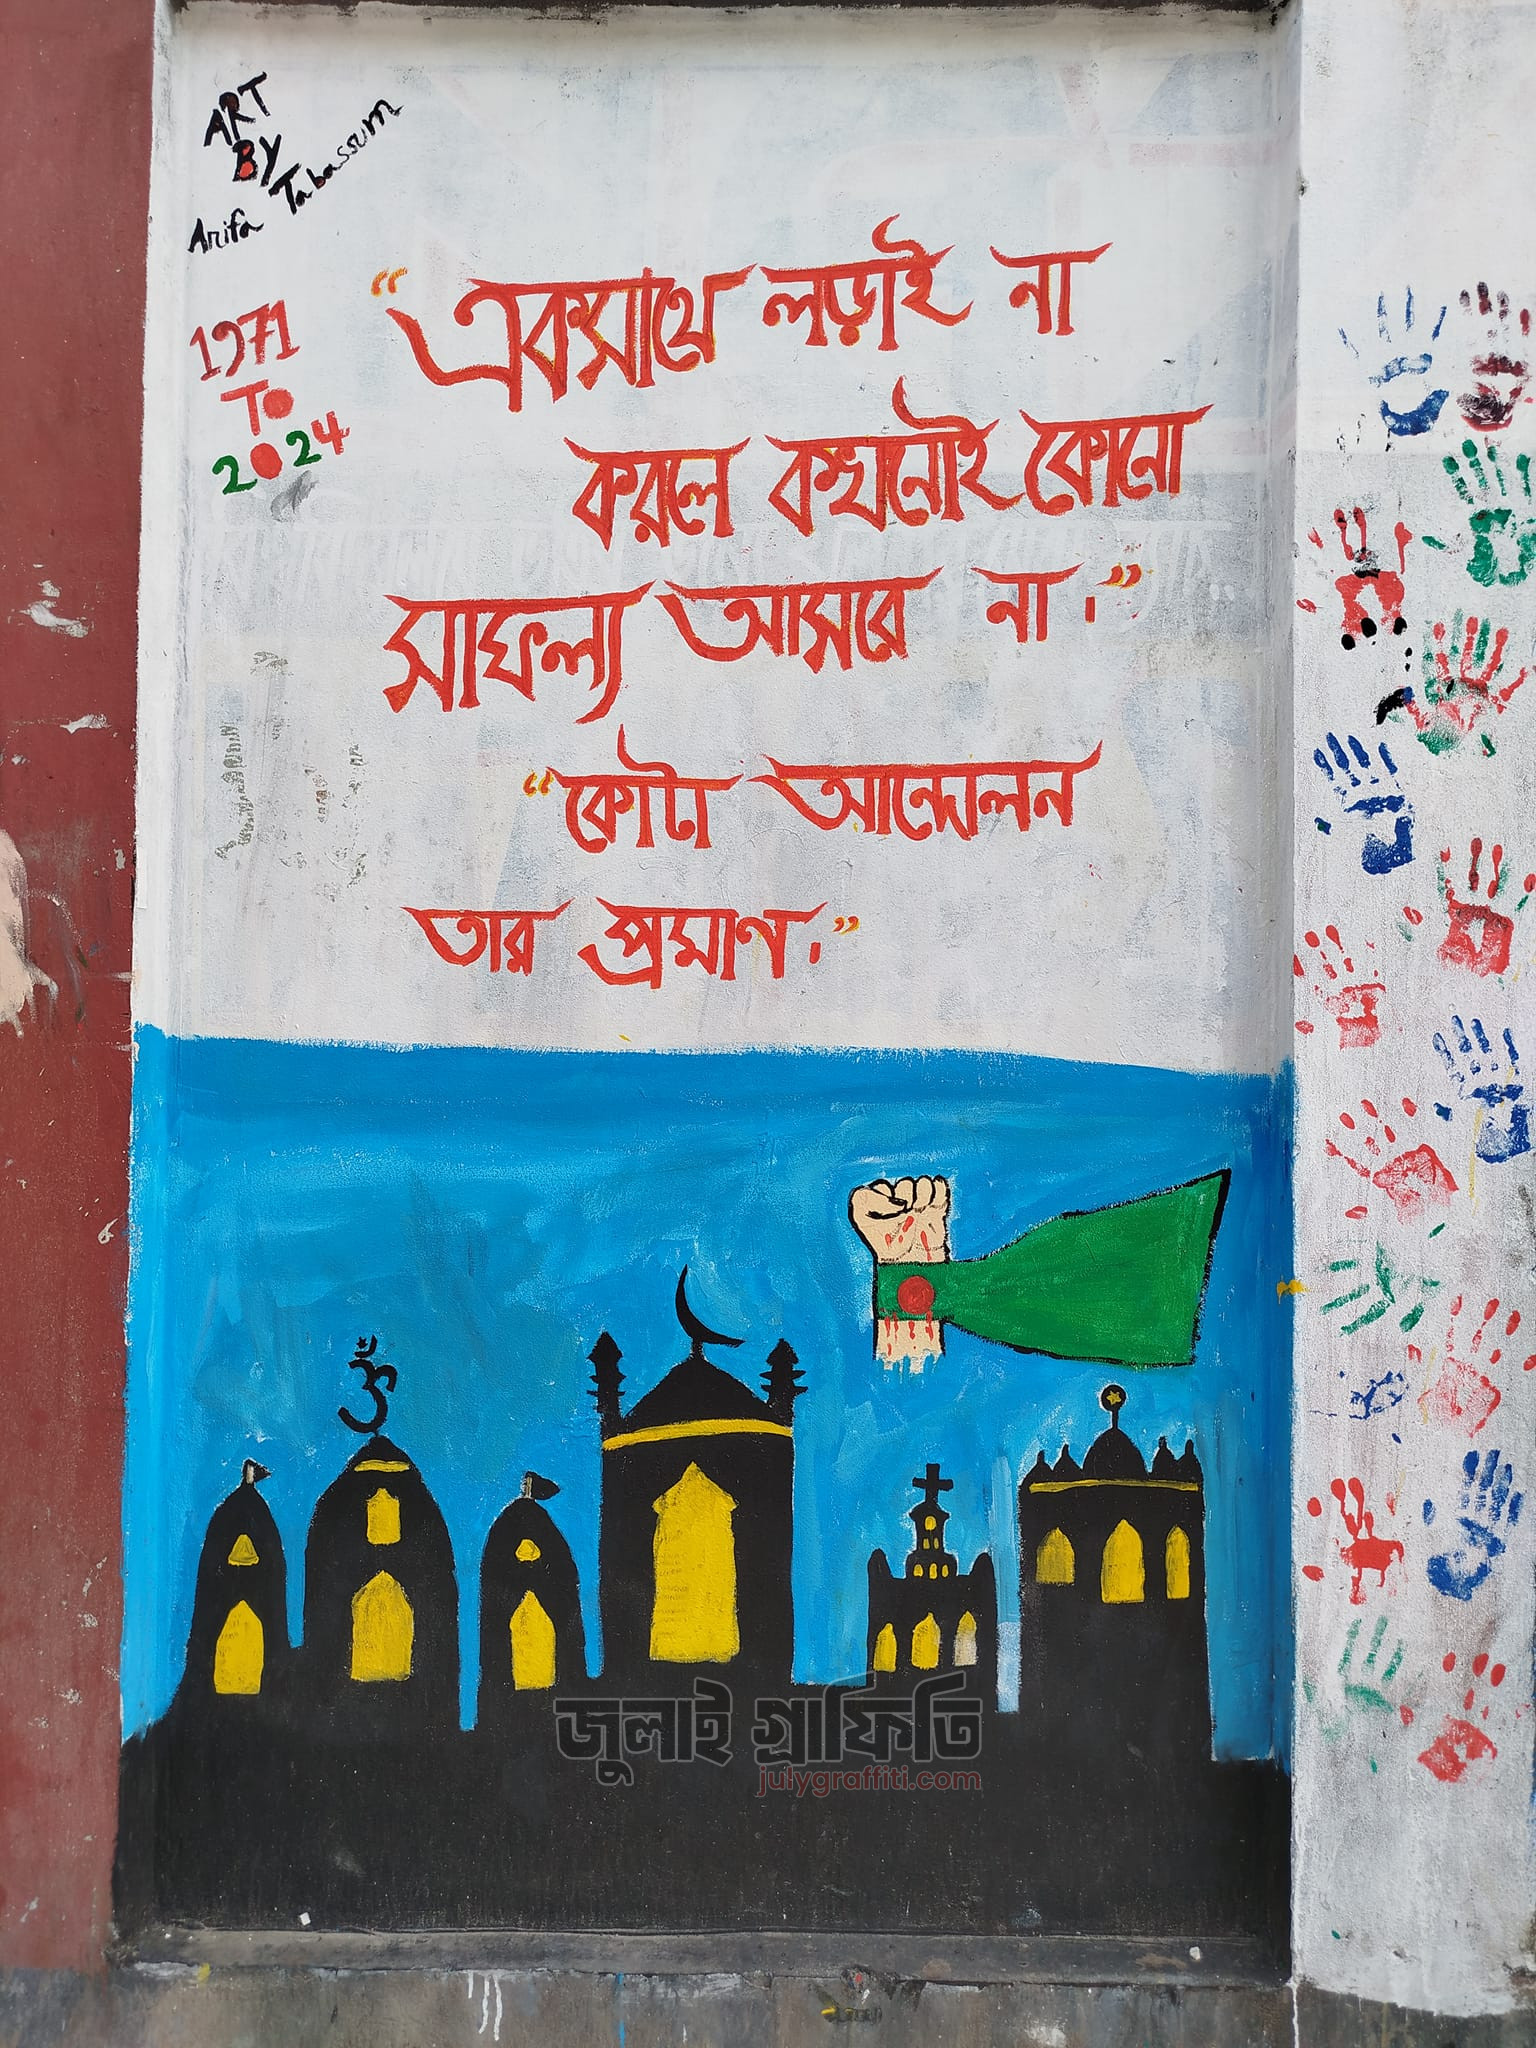 ART
BY
Arifa Tabassum
1971
TO
2024
“একসাথে লড়াই না
করলে কখনোই কোনো
সাফল্য আসবে না।”
“কোটা আন্দোলন
তার প্রমাণ।”
ॐ
জুলাই গ্রাফিতি
julygraffiti.com